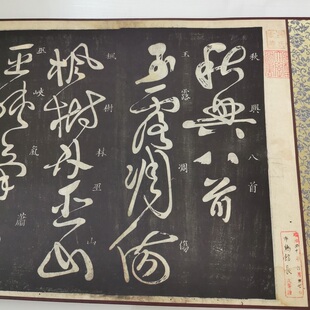 秋興八首
秋興八首
玉露凋傷
玉露凋傷
楓樹林巫山
楓樹林巫山
巫峽氣蕭
巫峽氣